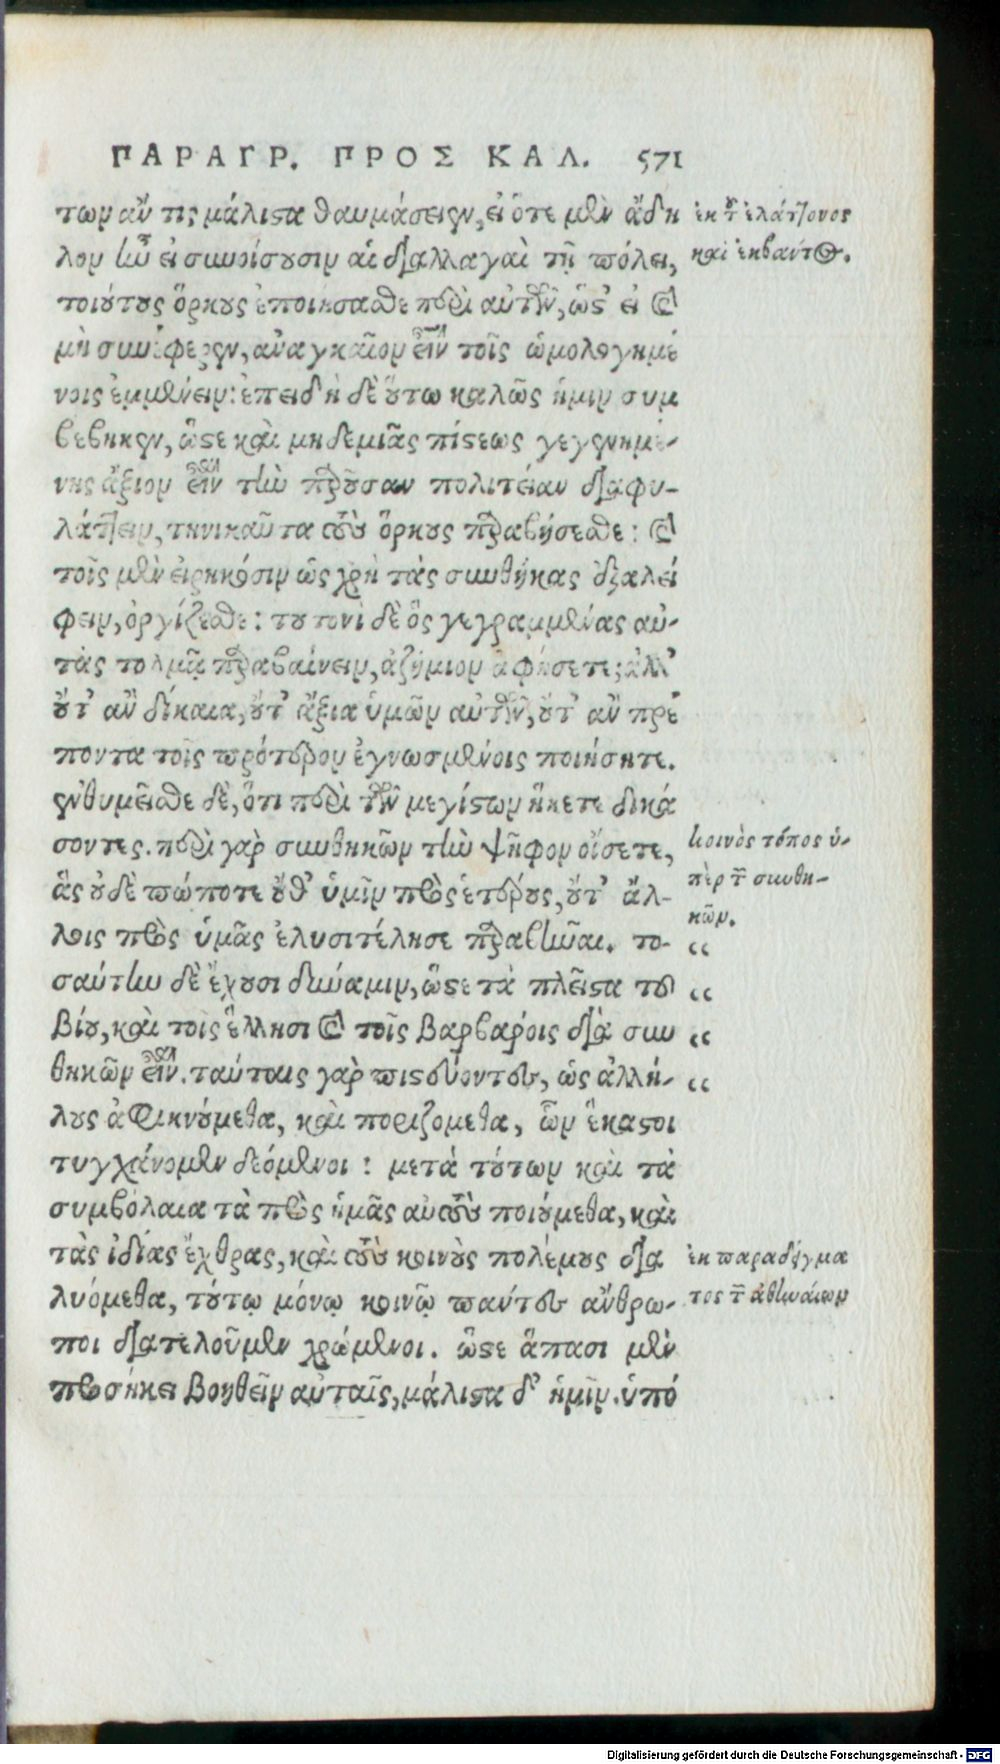 ΠΑΡΑΓΡ. ΠΡΟΣ ΚΑΛ. 571
των ἄν τις μάλιστα θαυμάσειεν, εἰ ὅτε μὲν ἄδη
λον ἦν εἰ συνοίσουσιν αἱ διαλλαγαὶ τῇ πόλει,
τοιούτους ὅρκους ἐποιήσασθε περὶ αὐτῶν, ὥστ' εἰ καὶ
μὴ συνέφερεν, ἀναγκαῖον εἶναι τοῖς ὡμολογημέ
νοις ἐμμένειν: ἐπειδὴ δὲ οὕτω καλῶς ἡμῖν συμ
βέβηκεν, ὥστε καὶ μηδεμιᾶς πίστεως γεγενημέ-
νης ἄξιον εἶναι τὴν παροῦσαν πολιτείαν διαφυ-
λάττειν, τηνικαῦτα τοὺς ὅρκους παραβήσεσθε: καὶ
τοῖς μὲν εἰρηκόσιν ὡς χρὴ τὰς συνθήκας ἐξαλεί
φειν, ὀργίζεσθε: τουτονὶ δὲ ὃς γεγραμμένας αὐ-
τὰς τολμᾷ παραβαίνειν, ἀζήμιον ἀφήσετε; ἀλλ'
οὔτ' ἂν δίκαια, οὔτ' ἄξια ὑμῶν αὐτῶν, οὔτ' ἂν πρέ
ποντα τοῖς πρότερον ἐγνωσμένοις ποιήσητε.
ἐνθυμεῖσθε δὲ, ὅτι περὶ τῶν μεγίστων ἥκετε δικά
σοντες. περὶ γὰρ συνθηκῶν τὴν ψῆφον οἴσετε,
ἃς οὐδὲ πώποτε οὔθ' ὑμῖν πρὸς ἑτέρους, οὔτ' ἄλ-
λοις πρὸς ὑμᾶς ἐλυσιτέλησε παραβῆναι. το-
σαύτην δὲ ἔχουσι δύναμιν, ὥστε τὰ πλεῖστα τοῦ
βίου, καὶ τοῖς ἕλλησι καὶ τοῖς βαρβάροις διὰ συν
θηκῶν εἶναι. ταύταις γὰρ πιστεύοντες, ὡς ἀλλή-
λους ἀφικνούμεθα, καὶ ποριζόμεθα, ὧν ἕκαστοι
τυγχάνομεν δεόμενοι: μετὰ τούτων καὶ τὰ
συμβόλαια τὰ πρὸς ἡμᾶς αὐτοὺς ποιούμεθα, καὶ
τὰς ἰδίας ἔχθρας, καὶ τοὺς κοινοὺς πολέμους δια
λυόμεθα, τούτῳ μόνῳ κοινῷ πάντες ἄνθρω-
ποι διατελοῦμεν χρώμενοι. ὥστε ἅπασι μὲν
προσήκει βοηθεῖν αὐταῖς, μάλιστα δ' ἡμῖν. ὑπό
ἐκ τοῦ ἐλάττονος
καὶ ἐκβάντος.
κοινὸς τόπος ὑ-
πὲρ τῶν συνθη-
κῶν.
“
“
“
“
ἐκ παραδείγμα
τος τῶν ἀθηναίων
Digitalisierung gefördert durch die Deutsche Forschungsgemeinschaft - DFG